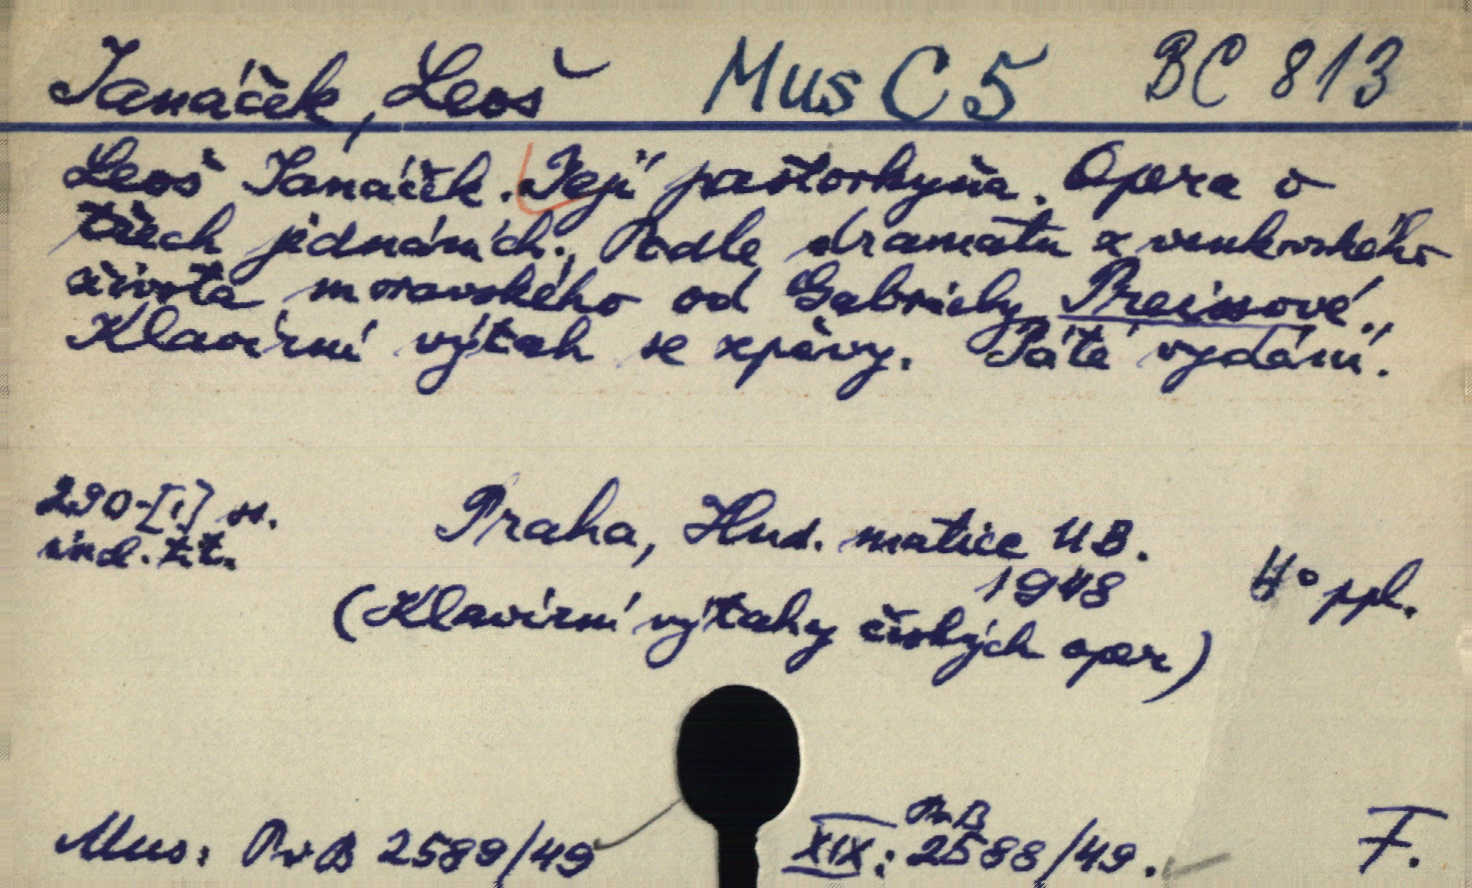 Janáček, Leoš Mus C 5 BC 813
Leoš Janáček. Její pastorkyňa. Opera o
třech jednáních. Podle dramatu z venkovského
života moravského od Gabriely Preissové.,
Klavírní výtah se zpěvy. Páté vydání.
290-[1] ss.
incl. tit.
Praha, Hud. matice UB.
1948
4° ppl.
(Klavírní výtahy českých oper)
Mus: PrB 2589/49
XIX: PrB 2588/49.
F.